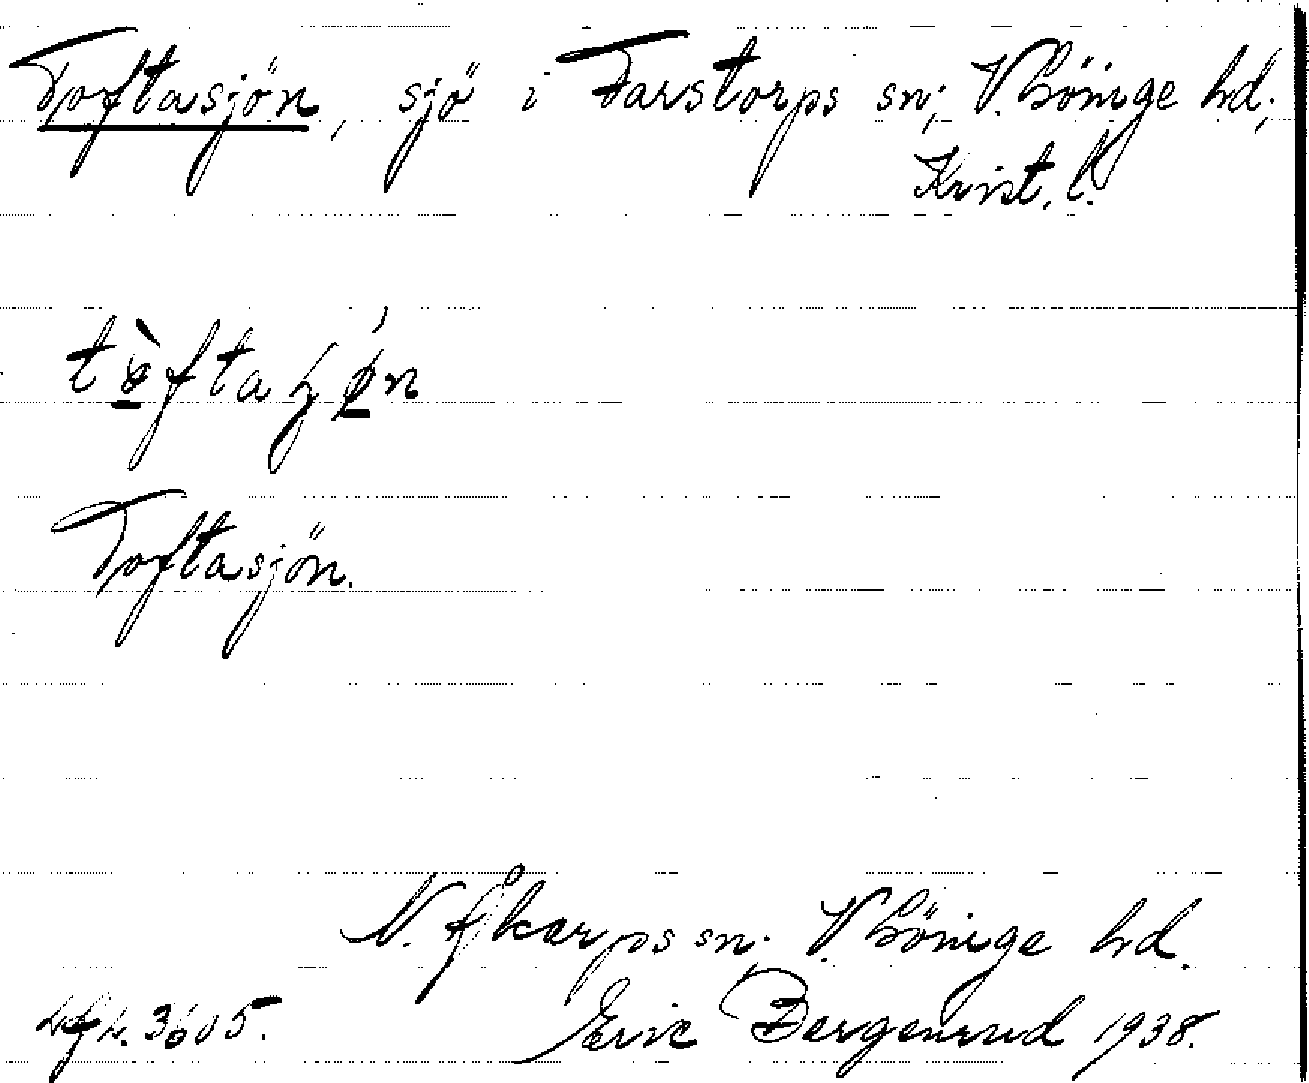 Toftasjön, sjö i Farstorps sn; V. Göinge hd;
Krist. l.
Toftasjön.
N. Åkarps sn; V. Göinge hd.
3605.
Eric Bergenrud 1938.